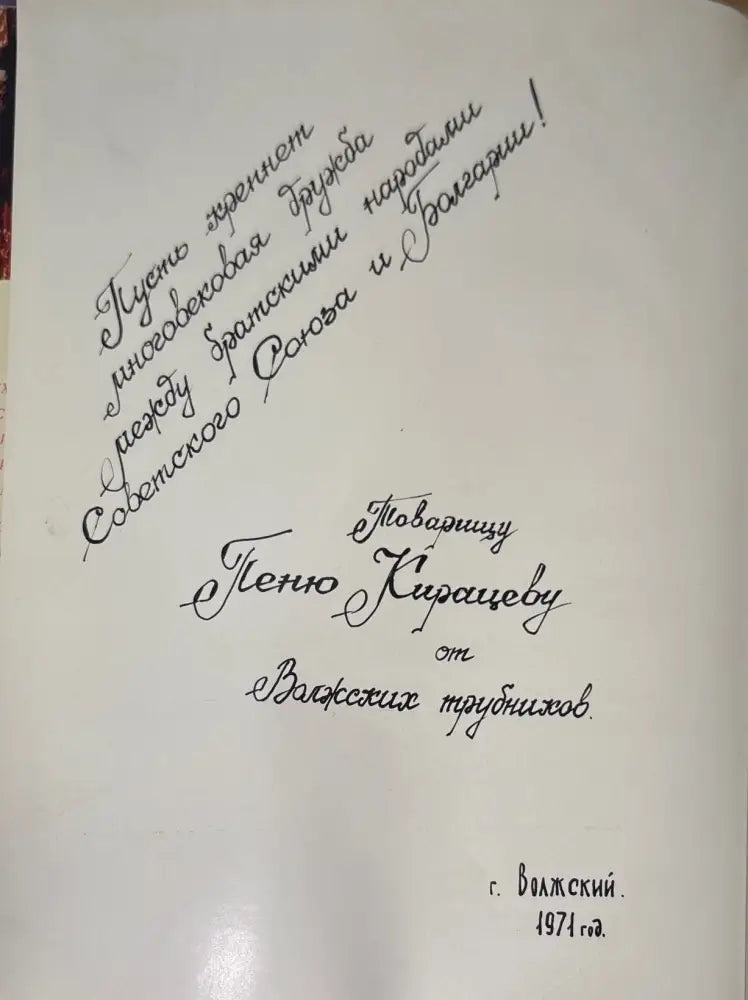 Пусть крепнет
многовековая дружба
между братскими народами
Советского Союза и Болгарии!
Товарищу
Пеню Кирацеву
от
Волжских трубников.
г. Волжский.
1971 год.